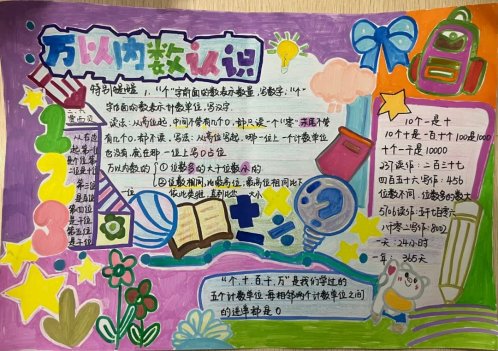 万以内数认识
特别提醒 1."个"字前面的数表示数量,写数字,"个"
字后面的数表示计数单位,写汉字
读法:从高位起,中间不管有几个0,都只读一个"零",末尾不管
有几个0,都不读,写法:从高位写起,哪一位上一个计数单位
也没有,就在那一位上写0占位
万以内数的 ①位数多的大于位数小的
②位数相同,比最高位,最高位相同比下
一位 依此类推,直到比出 大小
从右边
起第一位
是个位
第二位
是十位
第三位
第四位
是千位
第五位
1
2
3
10个一是十
10个十是一百十个100是1000
十个一千是10000
237读作:二百三十七
四百五十六写作:456
位数不同,位数多的数大
5706读作:五千七百零六
八百零二写作:802
一天:24小时
一年:365天
"个、十、百、千、万"是我们学过的
五个计数单位,每相邻两个计数单位之间
的进率都是